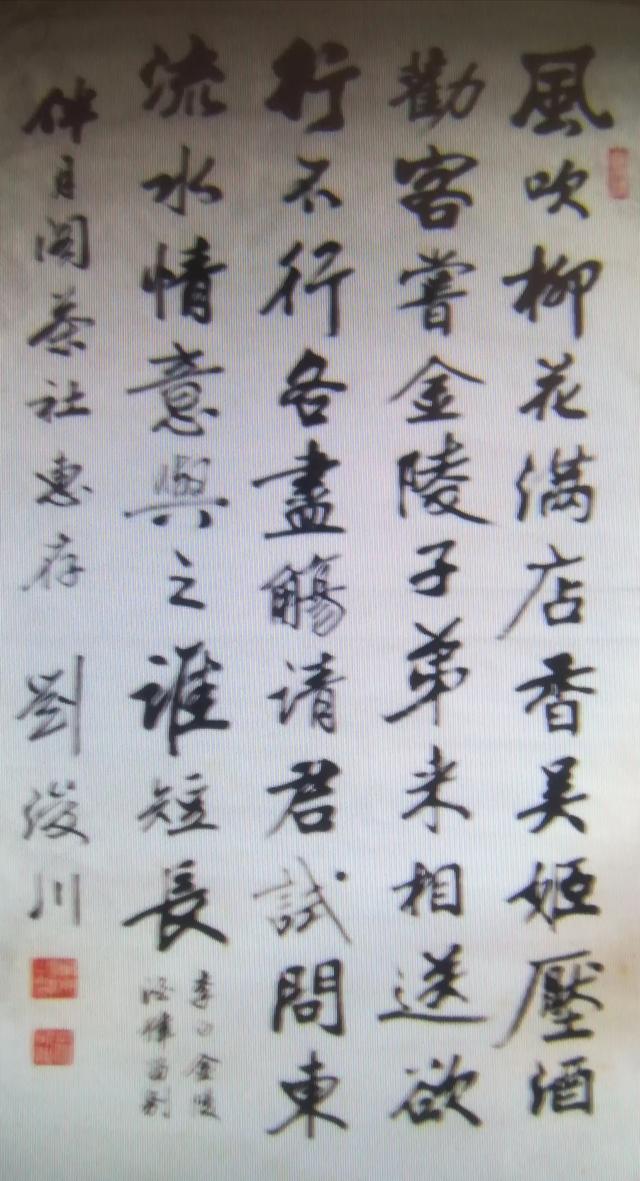 風吹柳花滿店香吳姬壓酒
勸客嘗金陵子弟来相送欲
行不行各盡觴請君試問東
流水情意與之誰短長
李白金陵
酒肆留别
伴月阁茶社惠存 劉浚川